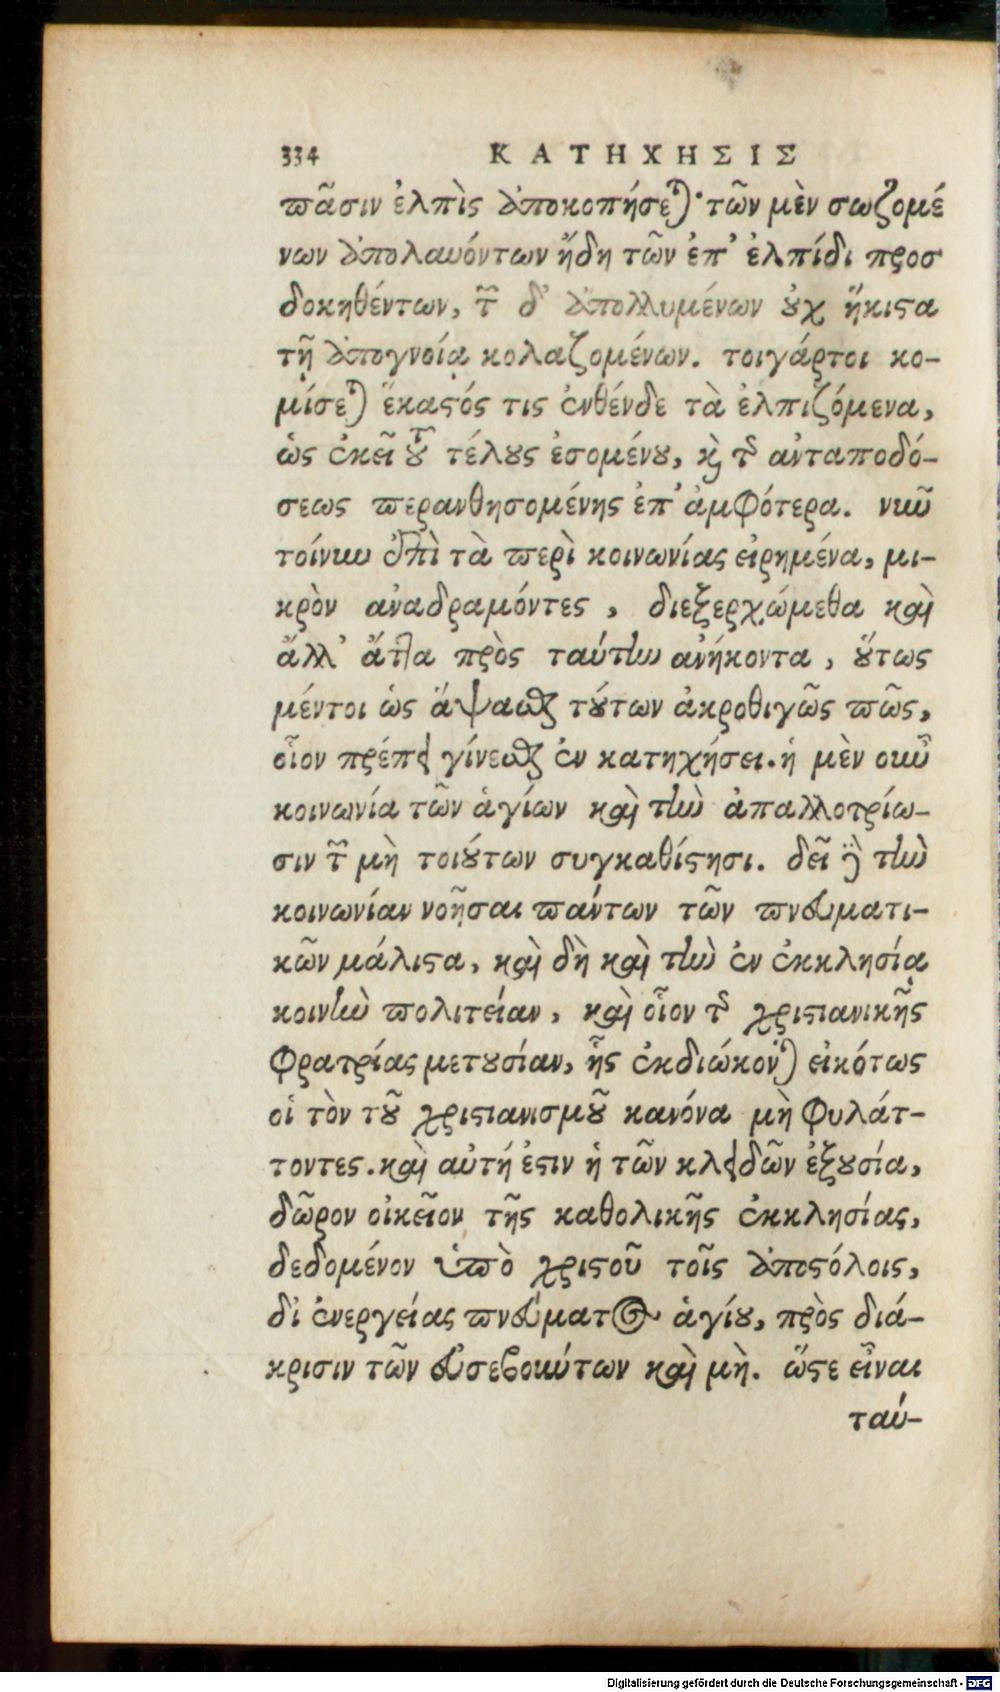 334 ΚΑΤΗΧΗΣΙΣ
πᾶσιν ἐλπὶς ἀποκοπήσεται· τῶν μὲν σωζομέ
νων ἀπολαυόντων ἤδη τῶν ἐπ' ἐλπίδι προσ
δοκηθέντων, τῶν δ' ἀπολλυμένων οὐχ ἥκιστα
τῇ ἀπογνοίᾳ κολαζομένων. τοιγάρτοι κο-
μίσεται ἕκαστός τις ἐνθένδε τὰ ἐλπιζόμενα,
ὡς ἐκεῖ τοῦ τέλους ἐσομένου, καὶ τῆς ἀνταποδό-
σεως περανθησομένης ἐπ' ἀμφότερα. νῦν
τοίνυν ἐπὶ τὰ περὶ κοινωνίας εἰρημένα, μι-
κρὸν ἀναδραμόντες, διεξερχώμεθα καὶ
ἄλλ' ἄττα πρὸς ταύτην ἀνήκοντα, οὕτως
μέντοι ὡς ἅψασθαι τούτων ἀκροθιγῶς πῶς,
οἷον πρέπει γίνεσθαι ἐν κατηχήσει. ἡ μὲν οὖν
κοινωνία τῶν ἁγίων καὶ τὴν ἀπαλλοτρίω-
σιν τῶν μὴ τοιούτων συγκαθίστησι. δεῖ γὰρ τὴν
κοινωνίαν νοῆσαι πάντων τῶν πνευματι-
κῶν μάλιστα, καὶ δὴ καὶ τὴν ἐν ἐκκλησίᾳ
κοινὴν πολιτείαν, καὶ οἷον τῆς χριστιανικῆς
φρατρίας μετουσίαν, ἧς ἐκδιώκονται εἰκότως
οἱ τὸν τοῦ χριστιανισμοῦ κανόνα μὴ φυλάτ-
τοντες. καὶ αὐτή ἐστιν ἡ τῶν κλειδῶν ἐξουσία,
δῶρον οἰκεῖον τῆς καθολικῆς ἐκκλησίας,
δεδομένον ὑπὸ χριστοῦ τοῖς ἀποστόλοις,
δι' ἐνεργείας πνεύματος ἁγίου, πρὸς διά-
κρισιν τῶν εὐσεβούντων καὶ μὴ. ὥστε εἶναι
ταύ-
Digitalisierung gefördert durch die Deutsche Forschungsgemeinschaft - DFG